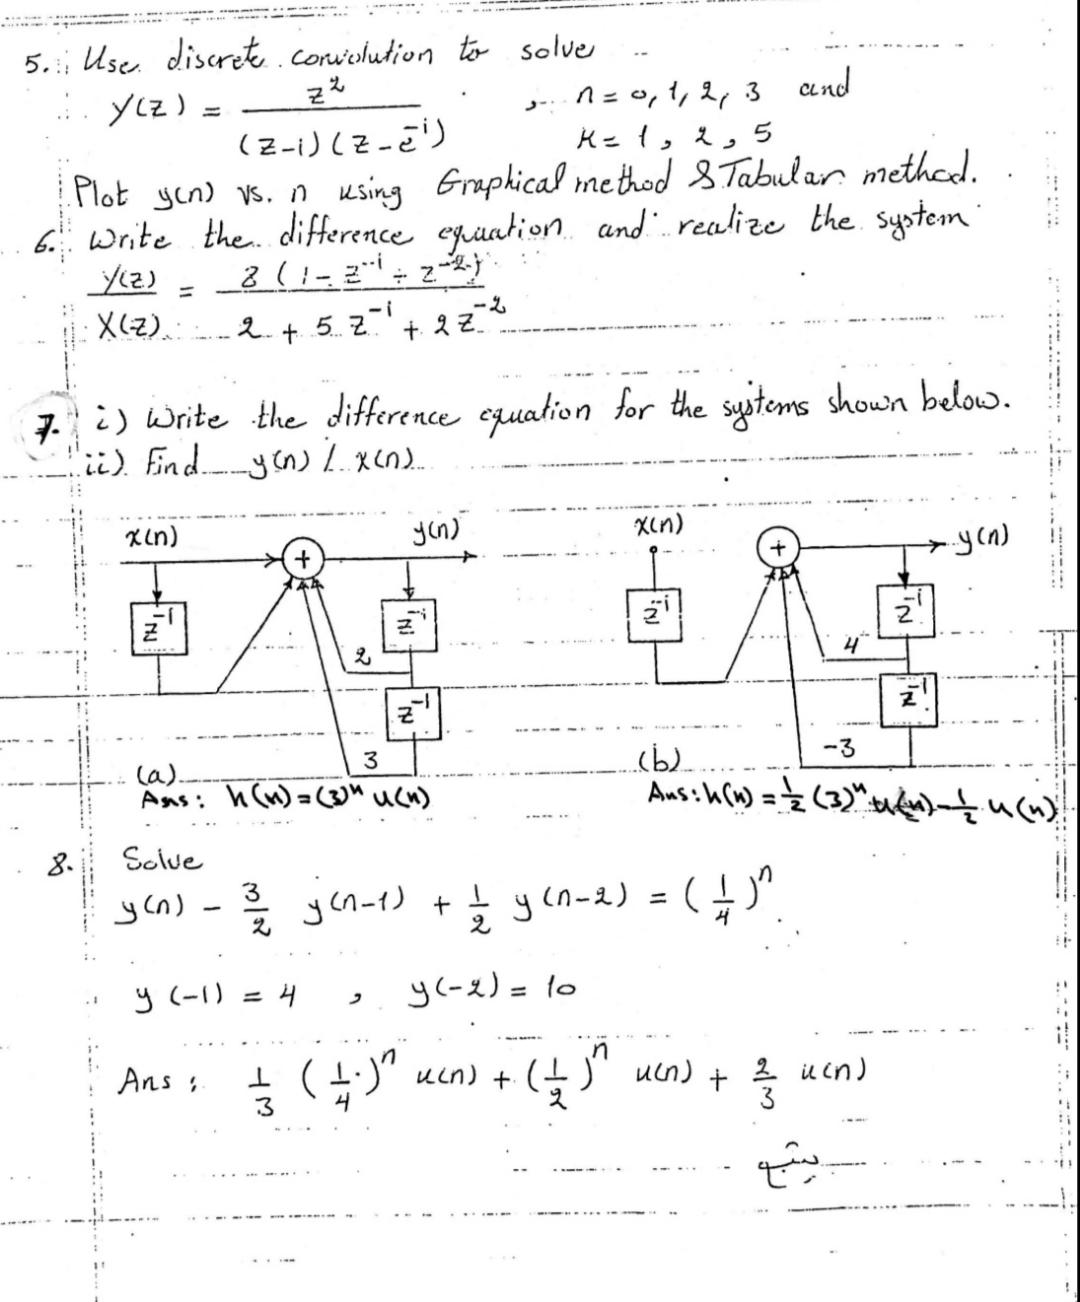 5. Use discrete convolution to solve
Y(z) = z² / (z-1)(z-e⁻¹) , n = 0, 1, 2, 3 and
K = 1, 2, 5
Plot y(n) vs. n using Graphical method & Tabular method.
6. Write the difference equation and realize the system
Y(z) / X(z) = 8(1 - z⁻¹ + z⁻²) / 2 + 5z⁻¹ + 2z⁻²
7. i) Write the difference equation for the systems shown below.
ii) Find y(n) / x(n)
x(n) + y(n)
z⁻¹ z⁻¹
2
z⁻¹
3
(a)
Ans: h(n) = (3)ⁿ u(n)
x(n) + y(n)
z⁻¹ z⁻¹
4
z⁻¹
-3
(b)
Ans: h(n) = 1/2 (3)ⁿ u(n) - 1/2 u(n)
8. Solve
y(n) - 3/2 y(n-1) + 1/2 y(n-2) = (1/4)ⁿ
y(-1) = 4 , y(-2) = 10
Ans: 1/3 (1/4)ⁿ u(n) + (1/2)ⁿ u(n) + 2/3 u(n)
يتبع